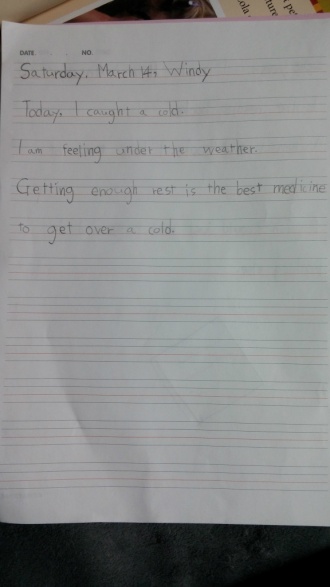 DATE NO.
Saturday, March 14, Windy
Today, I caught a cold.
I am feeling under the weather.
Getting enough rest is the best medicine
to get over a cold.